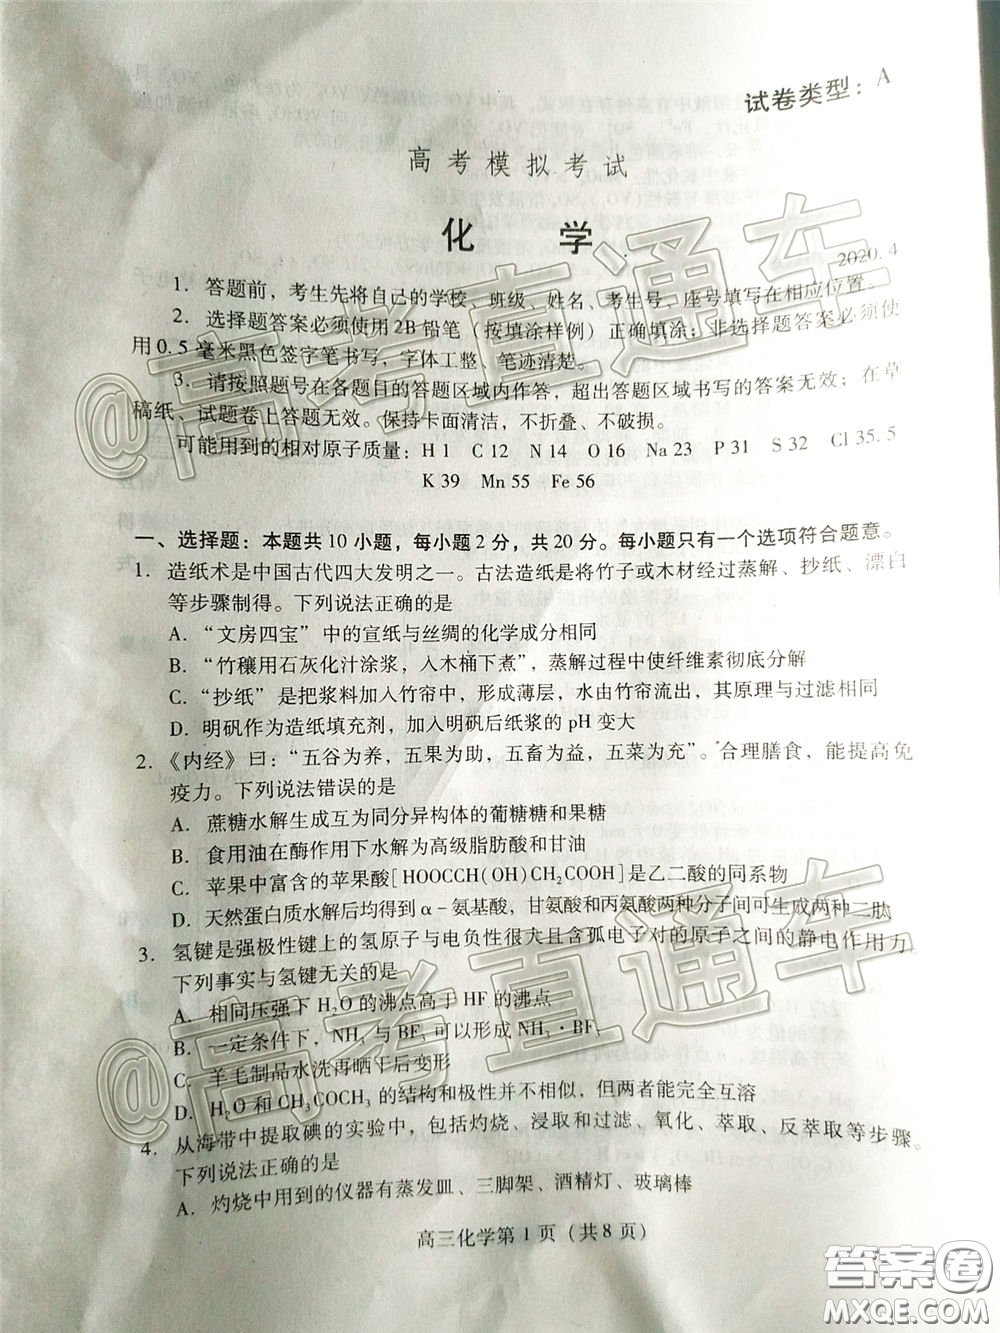 试卷类型：A
高考模拟考试
化 学
2020.4
1．答题前，考生先将自己的学校、班级、姓名、考生号、座号填写在相应位置。
2．选择题答案必须使用2B铅笔（按填涂样例）正确填涂；非选择题答案必须使
用0.5毫米黑色签字笔书写，字体工整、笔迹清楚。
3．请按照题号在各题目的答题区域内作答，超出答题区域书写的答案无效；在草
稿纸、试题卷上答题无效。保持卡面清洁，不折叠、不破损。
可能用到的相对原子质量：H 1 C 12 N 14 O 16 Na 23 P 31 S 32 Cl 35.5
K 39 Mn 55 Fe 56
一、选择题：本题共10小题，每小题2分，共20分。每小题只有一个选项符合题意。
1．造纸术是中国古代四大发明之一。古法造纸是将竹子或木材经过蒸解、抄纸、漂白
等步骤制得。下列说法正确的是
A．“文房四宝”中的宣纸与丝绸的化学成分相同
B．“竹穰用石灰化汁涂浆，入木桶下煮”，蒸解过程中使纤维素彻底分解
C．“抄纸”是把浆料加入竹帘中，形成薄层，水由竹帘流出，其原理与过滤相同
D．明矾作为造纸填充剂，加入明矾后纸浆的pH变大
2．《内经》曰：“五谷为养，五果为助，五畜为益，五菜为充”。合理膳食，能提高免
疫力。下列说法错误的是
A．蔗糖水解生成互为同分异构体的葡糖糖和果糖
B．食用油在酶作用下水解为高级脂肪酸和甘油
C．苹果中富含的苹果酸[HOOCCH(OH)CH₂COOH]是乙二酸的同系物
D．天然蛋白质水解后均得到α-氨基酸，甘氨酸和丙氨酸两种分子间可生成两种二肽
3．氢键是强极性键上的氢原子与电负性很大且含孤电子对的原子之间的静电作用力。
下列事实与氢键无关的是
A．相同压强下H₂O的沸点高于HF的沸点
B．一定条件下，NH₃与BF₃可以形成NH₃·BF₃
C．羊毛制品水洗再晒干后变形
D．H₂O和CH₃COCH₃的结构和极性并不相似，但两者能完全互溶
4．从海带中提取碘的实验中，包括灼烧、浸取和过滤、氧化、萃取、反萃取等步骤。
下列说法正确的是
A．灼烧中用到的仪器有蒸发皿、三脚架、酒精灯、玻璃棒
高三化学第1页（共8页）
@高考直通车
@高考直通车
答案圈
MXQE.COM